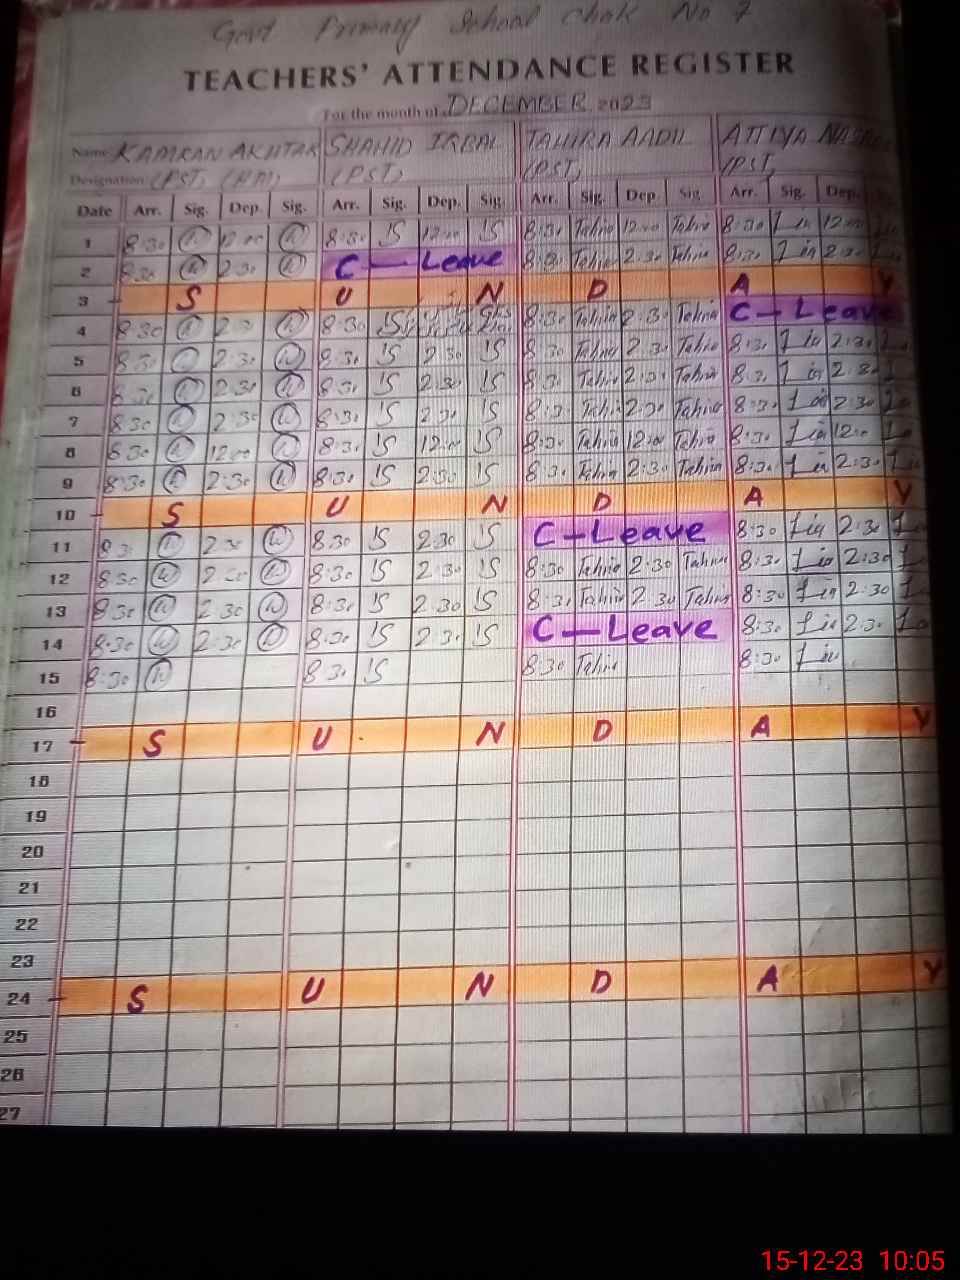 Govt Primary School Chak No 7
TEACHERS' ATTENDANCE REGISTER
For the month of DECEMBER 2023
Name: KAMRAN AKHTAR SHAHID IQBAL TAHIRA AADIL ATTIYA
Designation: (PST) (HM) (PST) (PST) (PST)
Date Arr. Sig. Dep. Sig. Arr. Sig. Dep. Sig. Arr. Sig. Dep. Sig. Arr. Sig. Dep.
1 8:30 12:00 8:30 IS 12:00 IS 8:30 Tahira 12:00 Tahira 8:30 12:00
2 8:30 2:30 C-Leave 8:30 Tahira 2:30 Tahira 8:30 2:30
3 S U N D A Y
4 8:30 2:30 8:30 8:30 Tahira 2:30 Tahira C-Leave
5 8:30 2:30 8:30 IS 2:30 IS 8:30 Tahira 2:30 Tahira 8:30 2:30
6 8:30 2:30 8:30 IS 2:30 IS 8:30 Tahira 2:30 Tahira 8:30 2:30
7 8:30 2:30 8:30 IS 2:30 IS 8:30 Tahira 2:30 Tahira 8:30 2:30
8 8:30 12:00 8:30 IS 12:00 IS 8:30 Tahira 12:00 Tahira 8:30 12:00
9 8:30 2:30 8:30 IS 2:30 IS 8:30 Tahira 2:30 Tahira 8:30 2:30
10 S U N D A Y
11 8:30 2:30 8:30 IS 2:30 IS C-Leave 8:30 2:30
12 8:30 2:30 8:30 IS 2:30 IS 8:30 Tahira 2:30 Tahira 8:30 2:30
13 8:30 2:30 8:30 IS 2:30 IS 8:30 Tahira 2:30 Tahira 8:30 2:30
14 8:30 2:30 8:30 IS 2:30 IS C-Leave 8:30 2:30
15 8:30 8:30 IS 8:30 Tahira 8:30
16
17 S U N D A Y
18
19
20
21
22
23
24 S U N D A Y
25
26
27
15-12-23 10:05